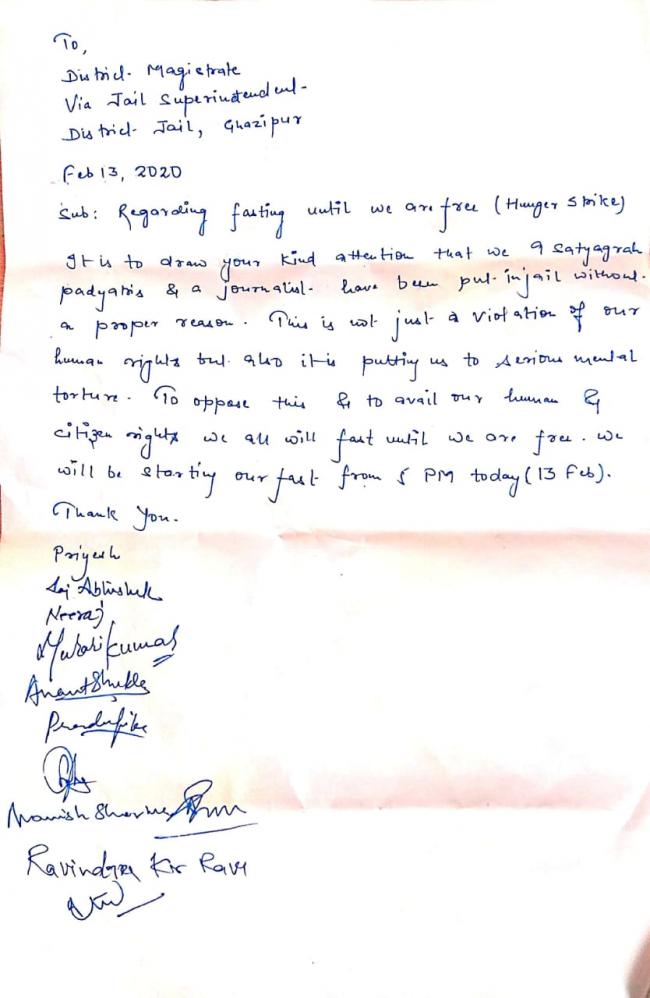 To,
District Magistrate
Via Jail Superindtendent
District Jail, Ghazipur
Feb 13, 2020
Sub: Regarding fasting until we are free (Hunger Strike)
It is to draw your kind attention that we 9 satyagrah
padyatris & a journalist have been put in jail without
a proper reason. This is not just a violation of our
human rights but also it is putting us to serious mental
torture. To oppose this & to avail our human &
citizen rights we all will fast until we are free. We
will be starting our fast from 5 PM today (13 Feb).
Thank You.
Priyesh
Raj Abhishek
Neeraj
Murari Kumar
Anant Shukla
Manish Sharma
Ravindra Kr Ravi